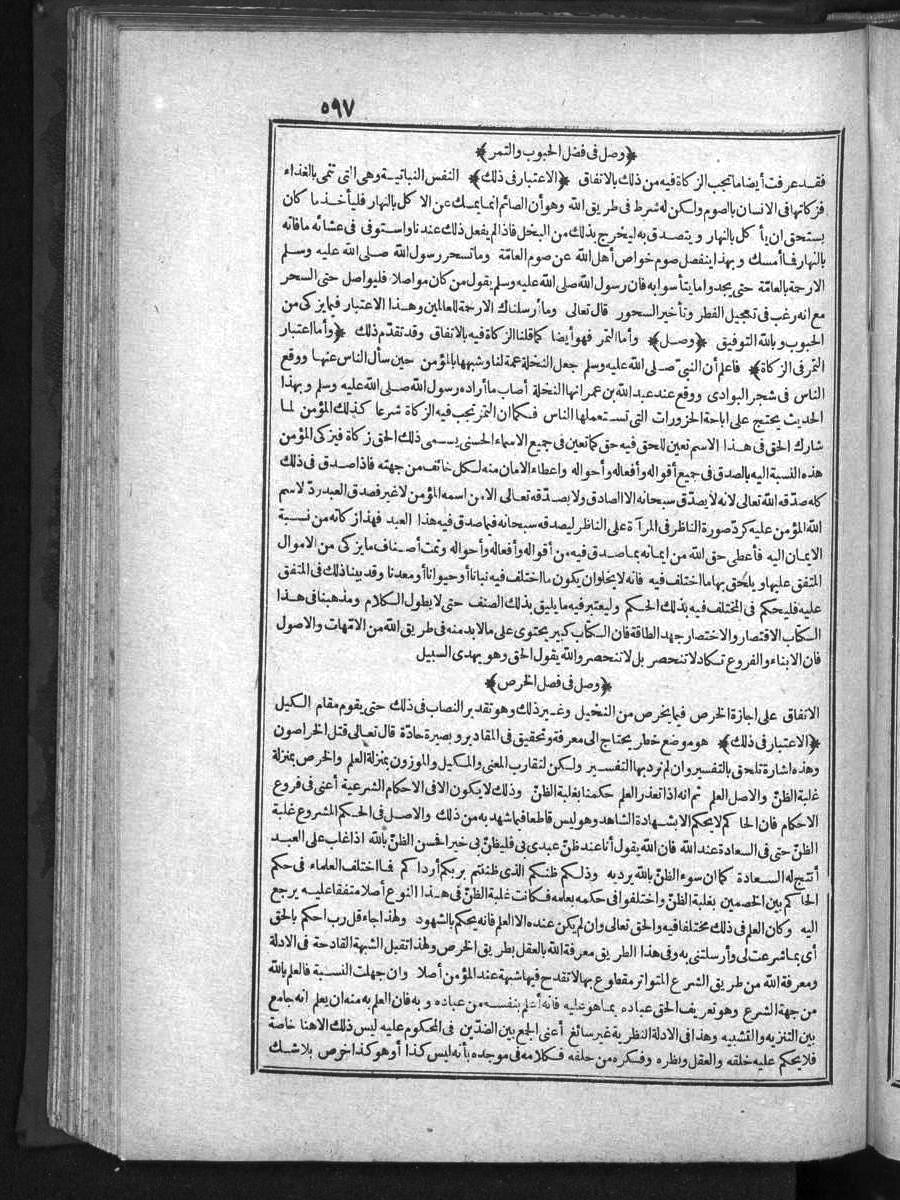 ٥٩٧
﴿وصل فى فضل الحبوب والتمر﴾
فقد عرفت أيضا ما تجب الزكاة فيه من ذلك بالاتفاق ﴿الاعتبار فى ذلك﴾ النفس النباتية وهى التى تنمى بالغذاء
فزكاتها فى الانسان بالصوم ولكن له شرط فى طريق الله وهو أن الصائم انما يمسك عن الاكل بالنهار فليأخذ ما كان
يستحق ان يأكل بالنهار ويتصدق به ليخرج بذلك من البخل فاذا لم يفعل ذلك عندنا واستوفى فى عشائه ما فاته
بالنهار فما أمسك وبهذا ينفصل صوم خواص أهل الله عن صوم العامّة وما تسحر رسول الله صلى الله عليه وسلم
الا رحمة بالعامّة حتى يجدوا ما يتأسوا به فان رسول الله صلى الله عليه وسلم يقول من كان مواصلا فليواصل حتى السحر
مع انه رغب فى تعجيل الفطر وتأخير السحور قال تعالى وما أرسلناك الا رحمة للعالمين وهذا الاعتبار فيما يزكى من
الحبوب وبالله التوفيق ﴿وصل﴾ وأما التمر فهو أيضا كما قلنا الزكاة فيه بالاتفاق وقد تقدّم ذلك ﴿وأما اعتبار
التمر فى الزكاة﴾ فاعلم أن النبىّ صلى الله عليه وسلم جعل النخلة عمة لنا وشبهها بالمؤمن حين سأل الناس عنها ووقع
الناس فى شجر البوادى ووقع عند عبد الله بن عمر انها النخلة أصاب ما أراده رسول الله صلى الله عليه وسلم وبهذا
الحديث يحتج على اباحة الحزورات التى تستعملها الناس فكما ان التمر تجب فيه الزكاة شرعا كذلك المؤمن لما
شارك الحق فى هذا الاسم تعين للحق فيه حق كما تعين فى جميع الاسماء الحسنى يسمى ذلك الحق زكاة فيزكى المؤمن
هذه النسبة اليه بالصدق فى جميع أقواله وأفعاله وأحواله واعطاء الامان منه لكل خائف من جهته فاذا صدق فى ذلك
كله صدّقه الله تعالى لانه لا يصدّق سبحانه الا الصادق ولا يصدّقه تعالى الا من اسمه المؤمن لا غير فصدق العبد ردّ لاسم
الله المؤمن عليه كردّ صورة الناظر فى المرآة على الناظر ليصدقه سبحانه فيما صدق فيه هذا العبد فهذا زكاته من نسبة
الايمان اليه فأعطى حق الله من ايمانه بما صدق فيه من أقواله وأفعاله وأحواله وتمت أصناف ما يزكى من الاموال
المتفق عليها ويلحق بها ما اختلف فيه فانه لا يخلو ان يكون ما اختلف فيه نباتا أو حيوانا أو معدنا وقد بينا ذلك فى المتفق
عليه فليحكم فى المختلف فيه بذلك الحكم وليعتبر فيه ما يليق بذلك الصنف حتى لا يطول الكلام ومذهبنا فى هذا
الكتاب الاقتصار والاختصار جهد الطاقة فان الكتاب كبير يحتوى على ما لا بد منه فى طريق الله من الامّهات والاصول
فان الابناء والفروع تكاد لا تنحصر بل لا تنحصر والله يقول الحق وهو يهدى السبيل
﴿وصل فى فصل الخرص﴾
الاتفاق على اجازة الخرص فيما يخرص من النخيل وغير ذلك وهو تقدير النصاب فى ذلك حتى يقوم مقام الكيل
﴿الاعتبار فى ذلك﴾ هو موضع خطر يحتاج الى معرفة وتحقيق فى المقادير وبصيرة حادّة قال تعالى قتل الخراصون
وهذه اشارة تلحق بالتفسير وان لم نرد بها التفسير ولكن لتقارب المعنى والمكيل والموزون بمنزلة العلم والخرص بمنزلة
غلبة الظنّ والاصل العلم ثم انه اذا تعذر العلم حكمنا بغلبة الظنّ وذلك لا يكون الا فى الاحكام الشرعية أعنى فى فروع
الاحكام فان الحاكم لا يحكم الا بشهادة الشاهد وهو ليس قاطعا فيما شهد به من ذلك والاصل فى الحكم المشروع غلبة
الظنّ حتى فى السعادة عند الله فان الله يقول أنا عند ظنّ عبدى بى فليظنّ بى خيرا فحسن الظنّ بالله اذا غلب على العبد
أنتج له السعادة كما ان سوء الظنّ بالله يرديه وذلكم ظنكم الذى ظننتم بربكم أرداكم فما اختلف العلماء فى حكم
الحاكم بين الخصمين بغلبة الظنّ واختلفوا فى حكمه بعلمه فكانت غلبة الظنّ فى هذا النوع أصلا متفقا عليه يرجع
اليه وكان العلم فى ذلك مختلفا فيه والحق تعالى وان لم يكن عنده الا العلم فانه يحكم بالشهود ولهذا جاء قل رب احكم بالحق
أى بما شرعت لى وأرسلتنى به وفى هذا الطريق معرفة الله بالعقل بطريق الخرص ولهذا تقبل الشبهة القادحة فى الادلة
ومعرفة الله من طريق الشرع المتواتر مقطوع بها لا تقدح فيها شبهة عند المؤمن أصلا وان جهلت النسبة فالعلم بالله
من جهة الشرع وهو تعريف الحق عباده بما هو عليه فانه أعلم بنفسه من عباده به فان العلم به منه ان يعلم انه جامع
بين التنزيه والتشبيه وهذا فى الادلة النظرية غير سائغ أعنى الجمع بين الضدّين فى المحكوم عليه ليس ذلك الا هنا خاصة
فلا يحكم عليه خلقه والعقل ونظره وفكره من خلقه فكلامه فى موجده بأنه ليس كذا أو هو كذا خرص بلا شك